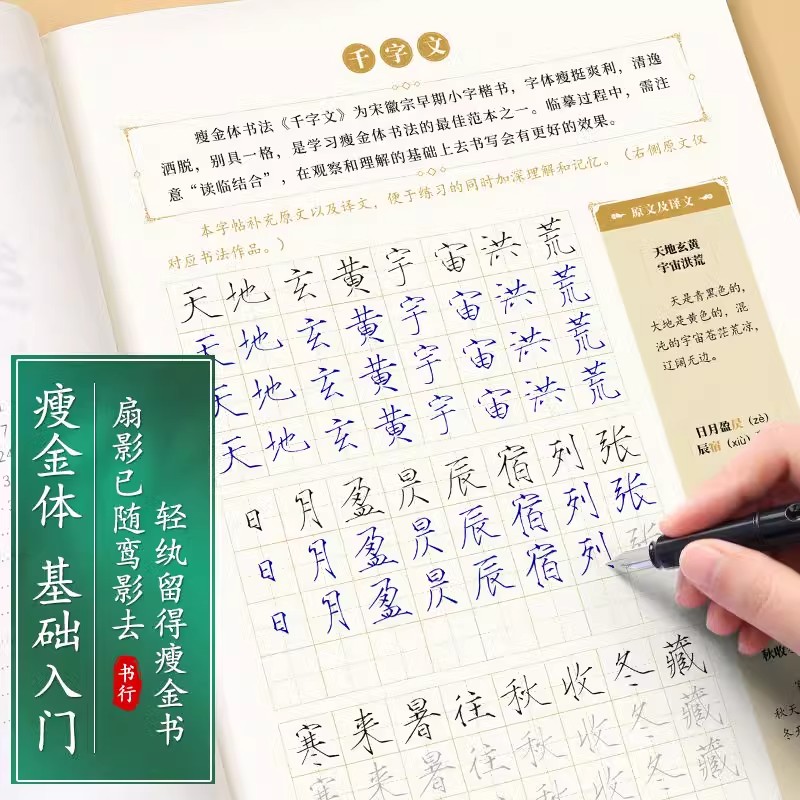 千字文
瘦金体书法《千字文》为宋徽宗早期小字楷书，字体瘦挺爽利，清逸
洒脱，别具一格，是学习瘦金体书法的最佳范本之一。临摹过程中，需注
意“读临结合”，在观察和理解的基础上去书写会有更好的效果。
本字帖补充原文以及译文，便于练习的同时加深理解和记忆。（右侧原文仅
对应书法作品。）
天地玄黄宇宙洪荒
天地玄黄宇宙洪荒
天地玄黄宇宙洪荒
天地玄黄宇宙洪荒
日月盈昃辰宿列张
日月盈昃辰宿列张
日月盈昃辰宿列张
寒来暑往秋收冬藏
寒来暑往秋收冬藏
原文及译文
天地玄黄
宇宙洪荒
天是青黑色的，
大地是黄色的，混
沌的宇宙苍茫荒凉，
辽阔无边。
日月盈昃（zè）
辰宿（xiù）
秋收
秋天
瘦金体 基础入门
扇影已随鸾影去
轻纨留得瘦金书
书行